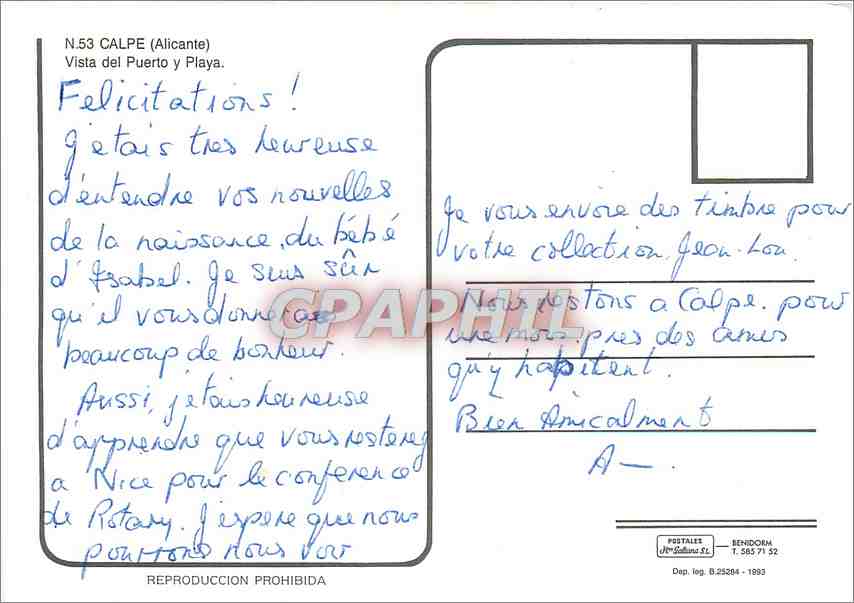 N.53 CALPE (Alicante)
Vista del Puerto y Playa.
Felicitations!
J'etais tres heureuse
d'entendre vos nouvelles
de la naissance, du bébé
d'Isabel. Je suis sûr
qu'il vous donnera
beaucoup de bonheur.
Aussi, j'etais heureuse
d'apprendre que vous resterez
a Nice pour le conference
de Rotary. J'espere que nous
pourrons nous voir
Je vous envoie des timbre pour
votre collection, Jean-Lou.
Nous restons a Calpe. pour
une mois. pres des amies
qu'y habitent.
Bien Amicalment
A—.
CPAPHIL
POSTALES
Hnos Galiana S.L.
BENIDORM
T. 585 71 52
Dep. leg. B.25284 - 1993
REPRODUCCION PROHIBIDA